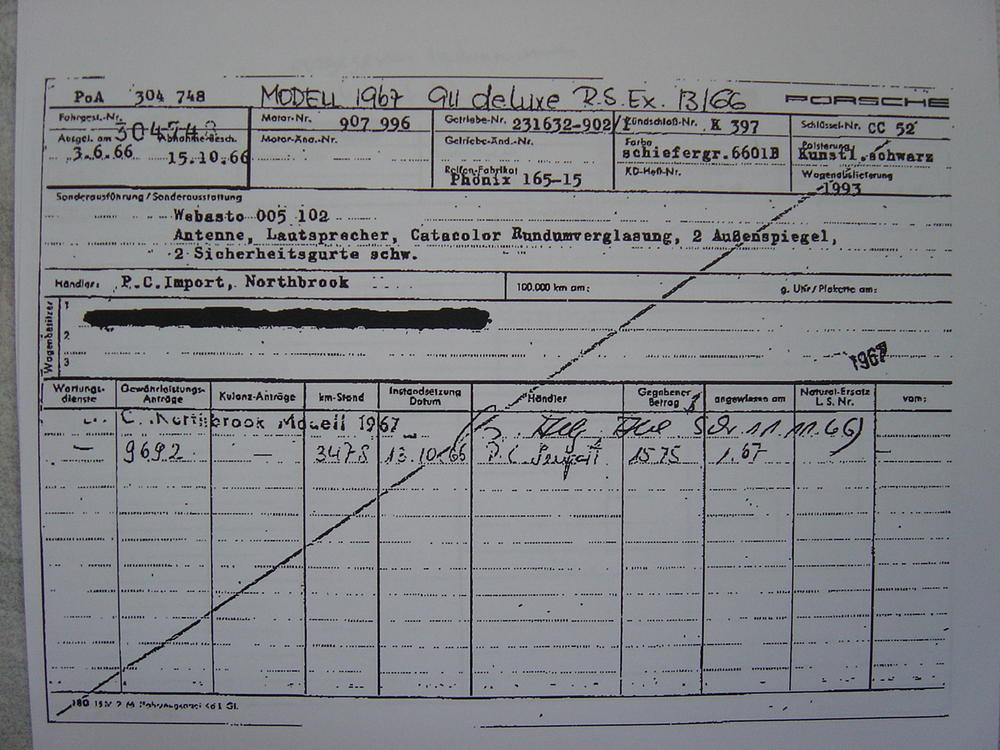 PoA 304 748 MODELL 1967 911 deluxe R.S.Ex. 13/66 PORSCHE
Fahrgest.-Nr. Motor-Nr. 907 996 Getriebe-Nr. 231632-902/1 Zündschloß-Nr. K 397 Schlüssel-Nr. CC 52
304748
Abgel. am Abnahme-Besch. Motor-Änd.-Nr. Getriebe-Änd.-Nr. Farbe Polsterung
3.6.66 15.10.66 schiefergr.6601B Kunstl.schwarz
Reifen-Fabrikat KD-Heft-Nr. Wagenauslieferung
Phönix 165-15 1993
Sonderausführung / Sonderausstattung
Webasto 005 102
Antenne, Lautsprecher, Catacolor Rundumverglasung, 2 Außenspiegel,
2 Sicherheitsgurte schw.
Händler: P.C.Import, Northbrook 100.000 km am: g. Uhr / Plakette am:
Wagenbesitzer
1
2
3
1967
Wartungs-dienste Gewährleistungs-Anträge Kulanz-Anträge km-Stand Instandsetzung Datum Händler Gegebener Betrag angewiesen am Natural-Ersatz L.S. Nr. vom:
Northbrook Modell 1967 11.11.66)
— 9692 — 3478 13.10.66 P.C. 1575 1.67 —